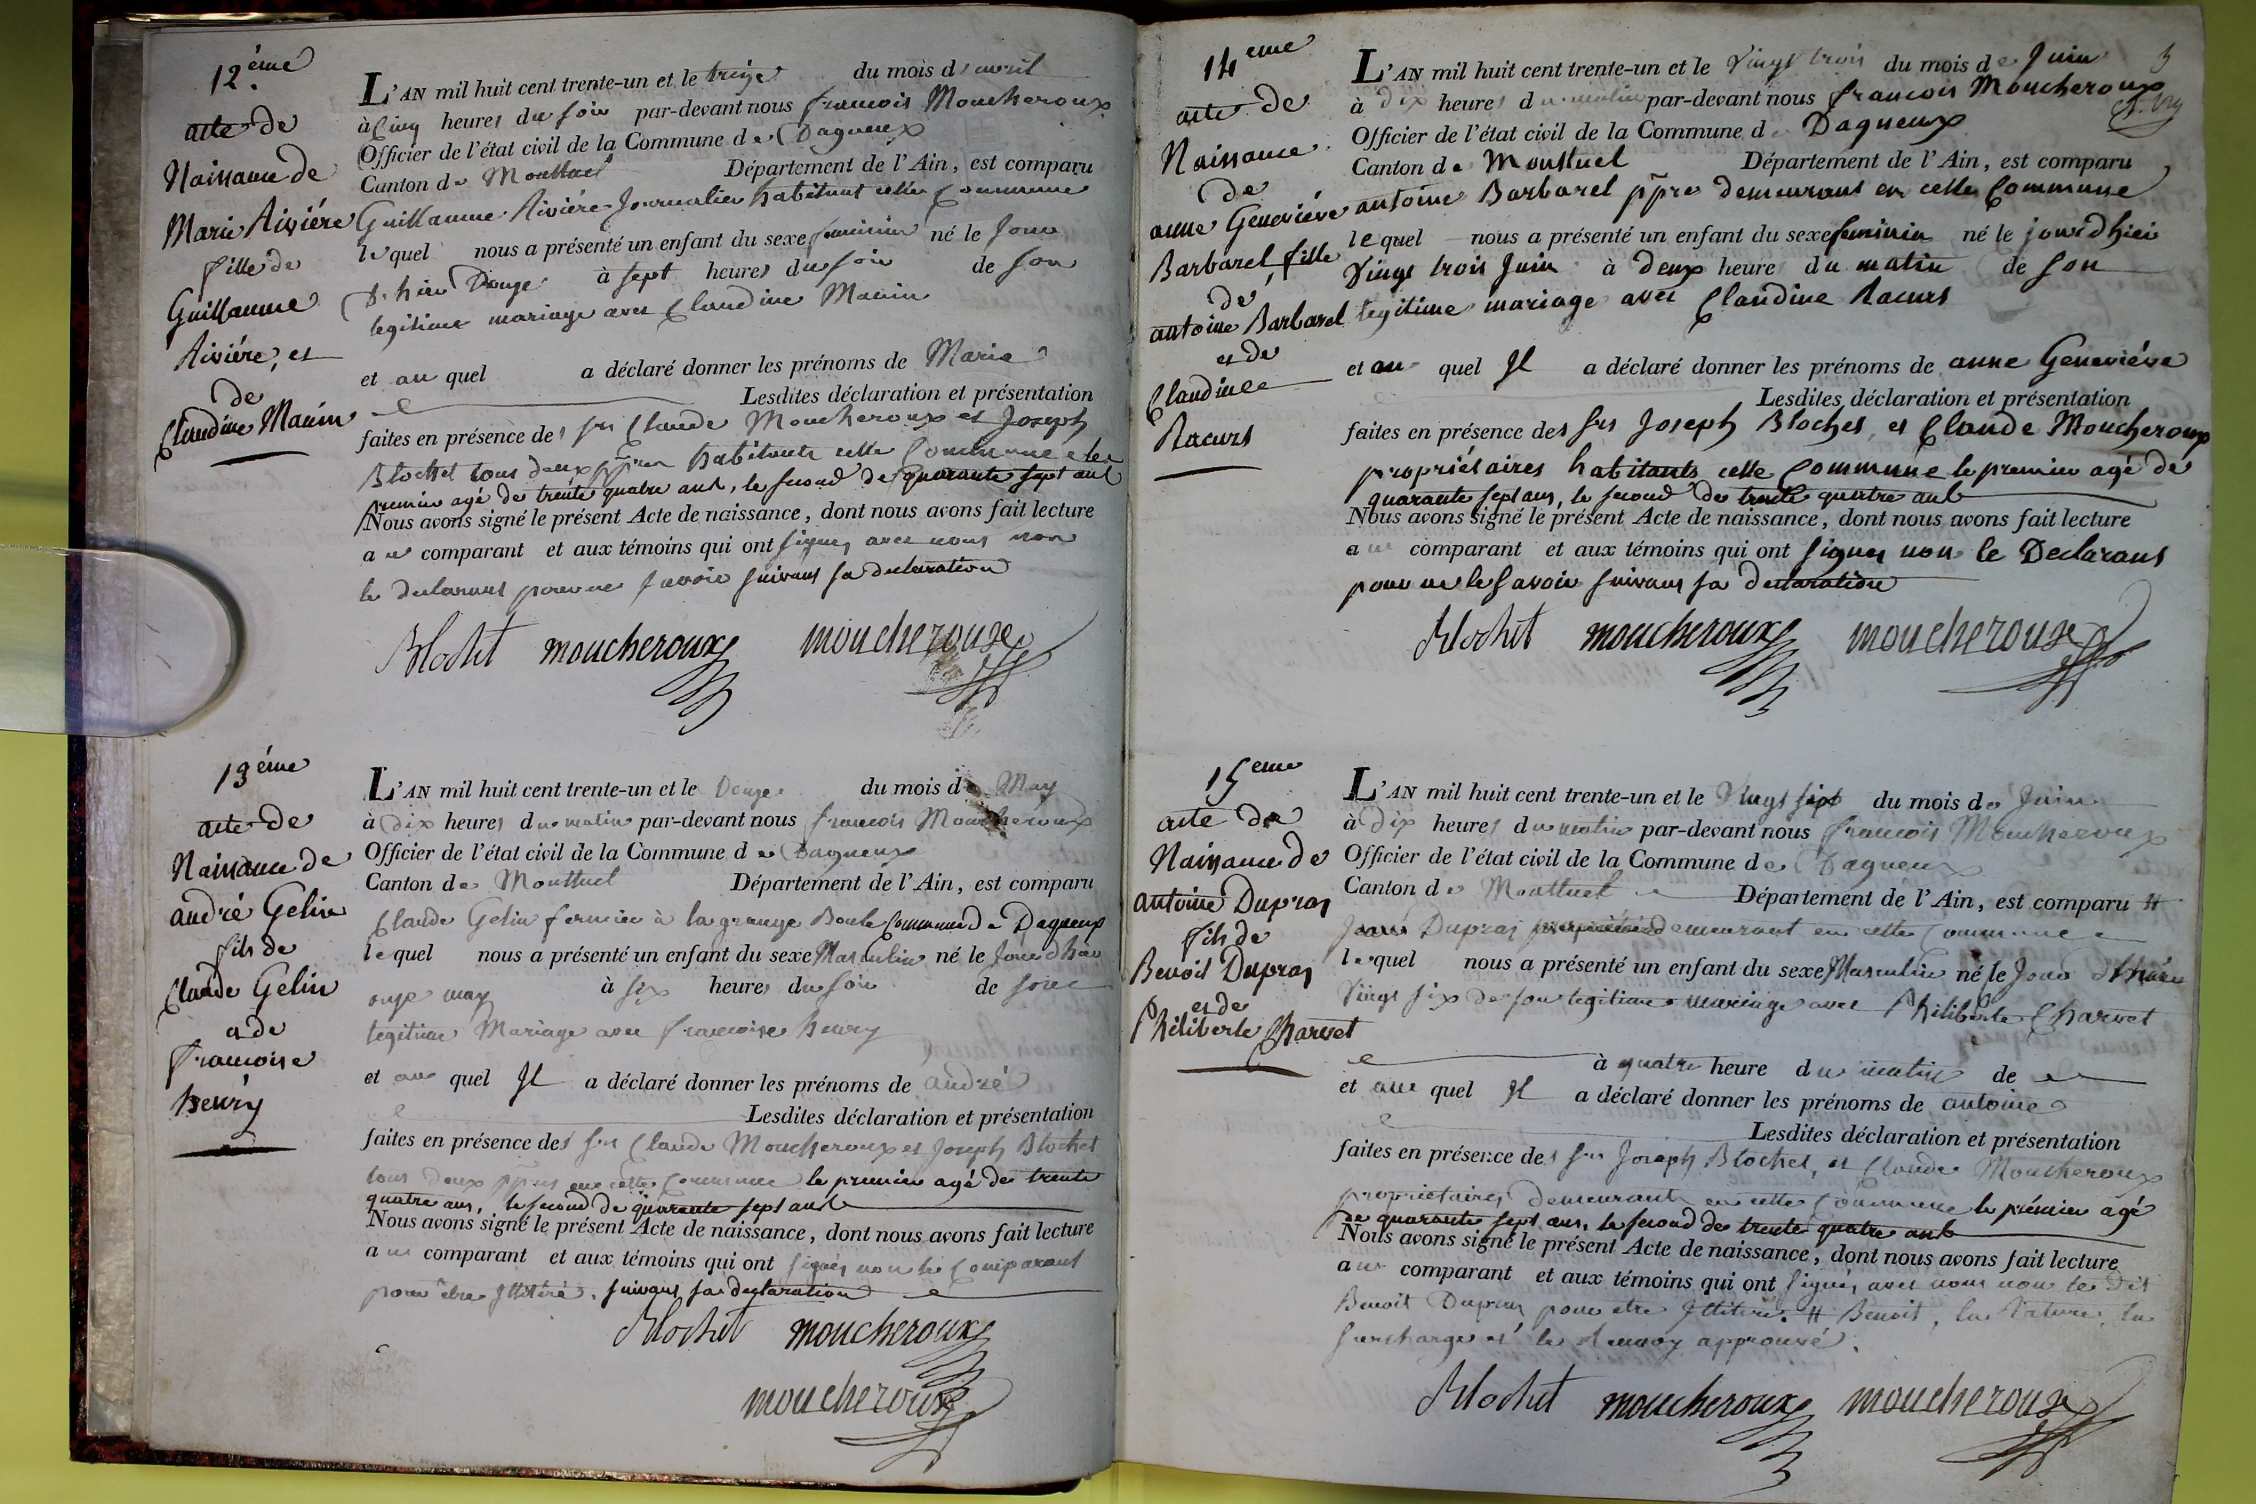 12.ème
acte de
Naissance de
Marie Rivière
fille de
Guillaume
Rivière, et
de
Claudine Manin
L'AN mil huit cent trente-un et le treize du mois d'avril
à Cinq heures du soir par-devant nous francois Moucheroux
Officier de l'état civil de la Commune de Dagneux
Canton de Montluel Département de l'Ain, est comparu
Guillaume Rivière Journalier habitant cette Commune
lequel nous a présenté un enfant du sexe feminin né le Jour
d'hier Douze à sept heures du soir de son
legitime mariage avec Claudine Manin
et au quel a déclaré donner les prénoms de Marie
Lesdites déclaration et présentation
faites en présence des srs Claude Moucheroux et Joseph
Blochet tous deux ppres habitants cette Commune le
premier agé de trente quatre ans, le second de quarante sept ans
Nous avons signé le présent Acte de naissance, dont nous avons fait lecture
au comparant et aux témoins qui ont signés avec nous non
le declarant pour ne savoir suivant sa declaration
Blochet moucheroux moucheroux
13ème
acte de
Naissance de
andré Gelin
fils de
Claude Gelin
et de
francoise
henry
L'AN mil huit cent trente-un et le Douze du mois de May
à Dix heures du matin par-devant nous francois Moucheroux
Officier de l'état civil de la Commune de Dagneux
Canton de Montluel Département de l'Ain, est comparu
Claude Gelin fermier à la grange Boule Commune de Dagneux
lequel nous a présenté un enfant du sexe Masculin né le Jour d'hier
onze may à six heures du soir de son
legitime Mariage avec francoise henry
et au quel Il a déclaré donner les prénoms de andré
Lesdites déclaration et présentation
faites en présence des srs Claude Moucheroux et Joseph Blochet
tous deux ppres en cette Commune le premier agé de trente
quatre ans, le second de quarante sept ans
Nous avons signé le présent Acte de naissance, dont nous avons fait lecture
au comparant et aux témoins qui ont signés non le Comparant
pour être Illitéré. suivant sa declaration
Blochet moucheroux
moucheroux
3
14ème
acte de
Naissance
de
anne Geneviéve
Barbarel fille
de
antoine Barbarel
et de
Claudine
Racurt
L'AN mil huit cent trente-un et le Vingt trois du mois de Juin
à dix heures du matin par-devant nous francois Moucheroux
Officier de l'état civil de la Commune de Dagneux
Canton de Montluel Département de l'Ain, est comparu
antoine Barbarel ppre demeurant en cette Commune
lequel nous a présenté un enfant du sexe feminin né le jourd'hui
Vingt trois Juin à deux heures du matin de son
legitime mariage avec Claudine Racurt
et au quel Il a déclaré donner les prénoms de anne Geneviéve
Lesdites déclaration et présentation
faites en présence des srs Joseph Blochet, et Claude Moucheroux
propriétaires habitants cette Commune le premier agé de
quarante sept ans, le second de trente quatre ans
Nous avons signé le présent Acte de naissance, dont nous avons fait lecture
au comparant et aux témoins qui ont signés non le Declarant
pour ne le savoir suivant sa declaration
Blochet moucheroux moucheroux
15eme
acte de
Naissance de
antoine Dupras
fils de
Benoit Dupras
et de
Philiberte Charvet
L'AN mil huit cent trente-un et le Vingt sept du mois de Juin
à dix heures du matin par-devant nous francois Moucheroux
Officier de l'état civil de la Commune de Dagneux
Canton de Montluel Département de l'Ain, est comparu #
Dupras demeurant en cette Commune
lequel nous a présenté un enfant du sexe Masculin né le Jour d'hier
Vingt six de son legitime mariage avec Philiberte Charvet
à quatre heure du matin de
et au quel Il a déclaré donner les prénoms de antoine
Lesdites déclaration et présentation
faites en présence des srs Joseph Blochet, et Claude Moucheroux
propriétaires demeurant en cette Commune le prémier agé
de quarante sept ans, le second de trente quatre ans
Nous avons signé le présent Acte de naissance, dont nous avons fait lecture
au comparant et aux témoins qui ont signés avec nous non le Dit
Benoit Dupras pour etre Illitéré. # Benoit, la Rature, la
surcharge et le Renvoy approuvé.
Blochet moucheroux moucheroux